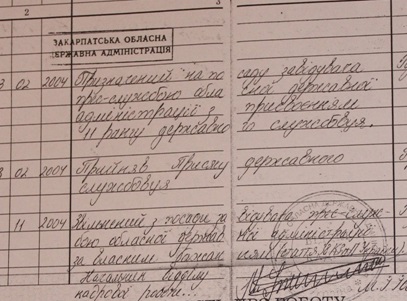 2 3
ЗАКАРПАТСЬКА ОБЛАСНА
ДЕРЖАВНА АДМІНІСТРАЦІЯ
3 02 2004 Призначений на по саду завідувача
прес-службою обла сної державної
адміністрації з присвоєнням
11 рангу державно го службовця.
3 02 2004 Прийняв Присягу державного
службовця
11 2004 Звільнений з посади за відувача прес-служ-
бою обласної держав ної адміністрації
за власним бажан
Начальник відділу
кадрової роботи
РОБОТУ